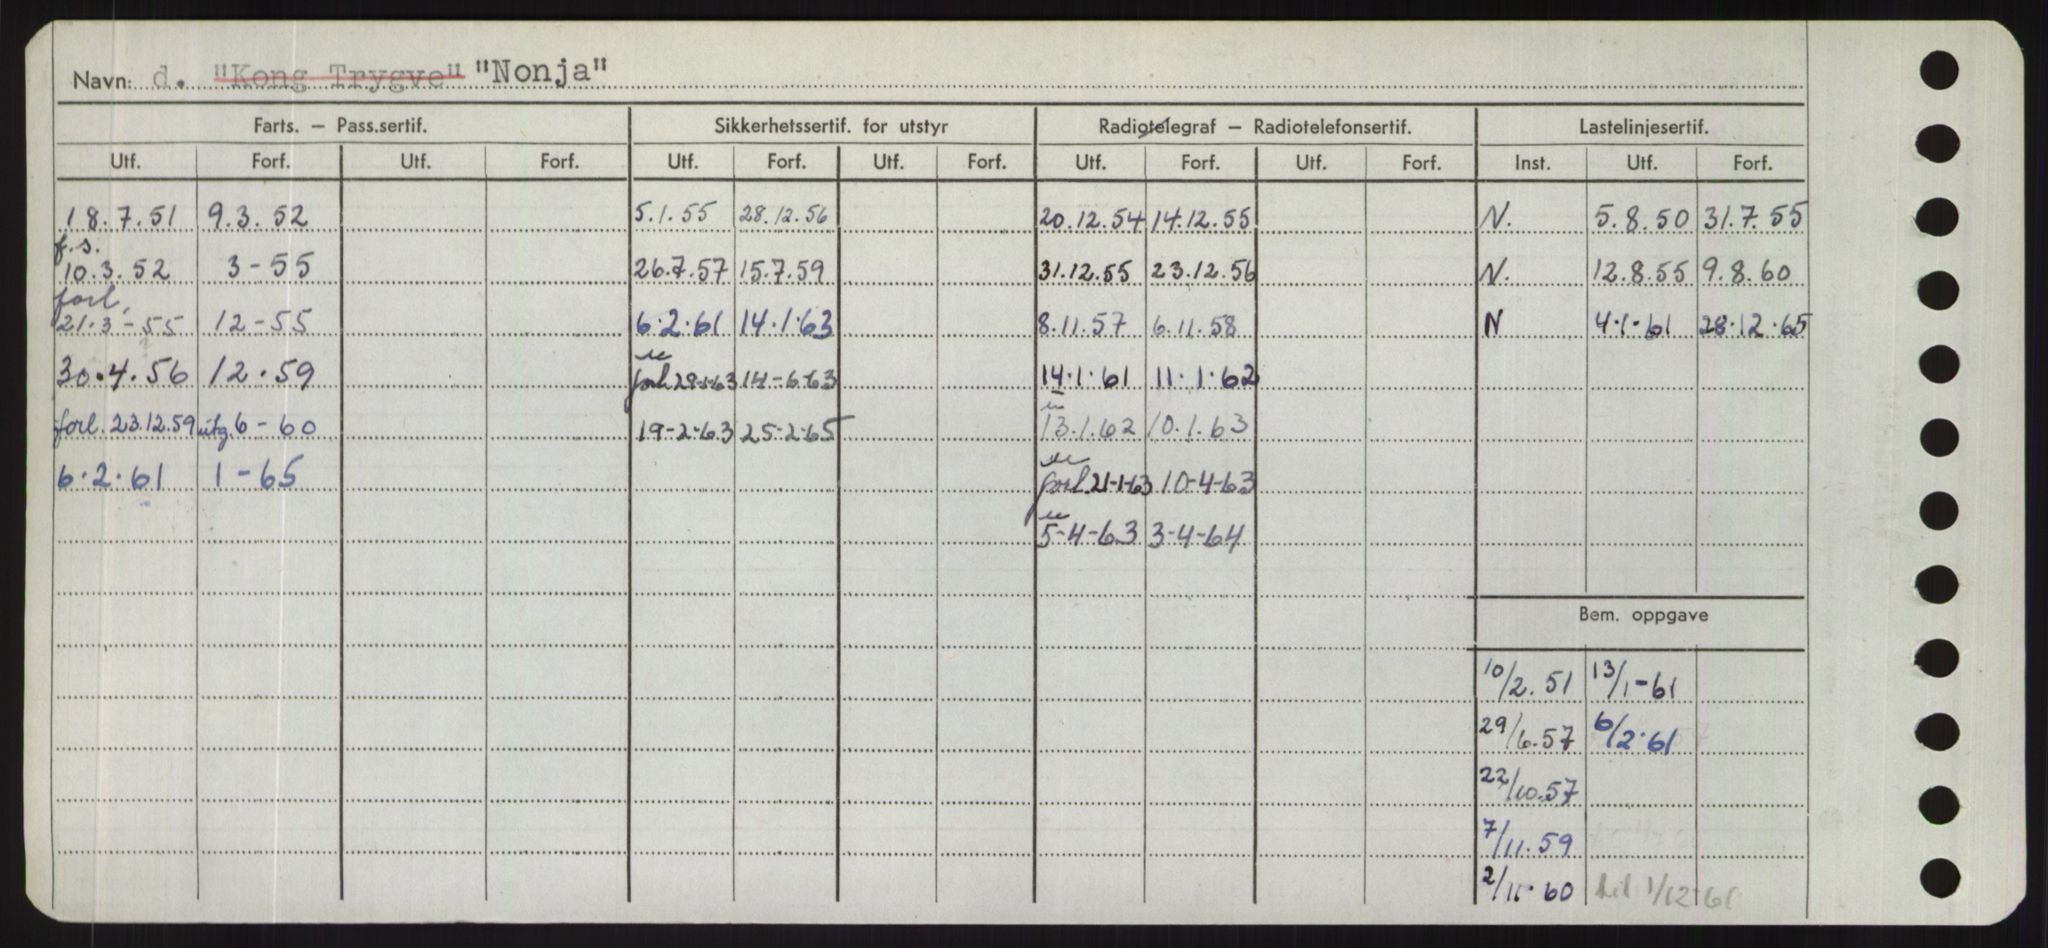 Navn: d. "Kong Trygve" "Nonja"
Farts. – Pass.sertif. Sikkerhetssertif. for utstyr Radiotelegraf – Radiotelefonsertif. Lastelinjesertif.
Utf. Forf. Utf. Forf. Utf. Forf. Utf. Forf. Utf. Forf. Utf. Forf. Inst. Utf. Forf.
18.7.51 9.3.52 5.1.55 28.12.56 20.12.54 14.12.55 N. 5.8.50 31.7.55
f.s.
10.3.52 3-55 26.7.57 15.7.59 31.12.55 23.12.56 N. 12.8.55 9.8.60
forl.
21.3-55 12-55 6.2.61 14.1.63 8.11.57 6.11.58 N 4.1.61 28.12.65
30.4.56 12.59 forl 29-1-63 14-6-63 14.1.61 11.1.62
forl. 23.12.59 utg. 6-60 19-2-63 25-2-65 13.1.62 10.1.63
6.2.61 1-65 forl. 21-1-63 10-4-63
5-4-63 3-4-64
Bem. oppgave
10/2.51 13/1-61
29/6.57 6/2.61
22/10.57
7/11.59
2/11.60 1/12.61